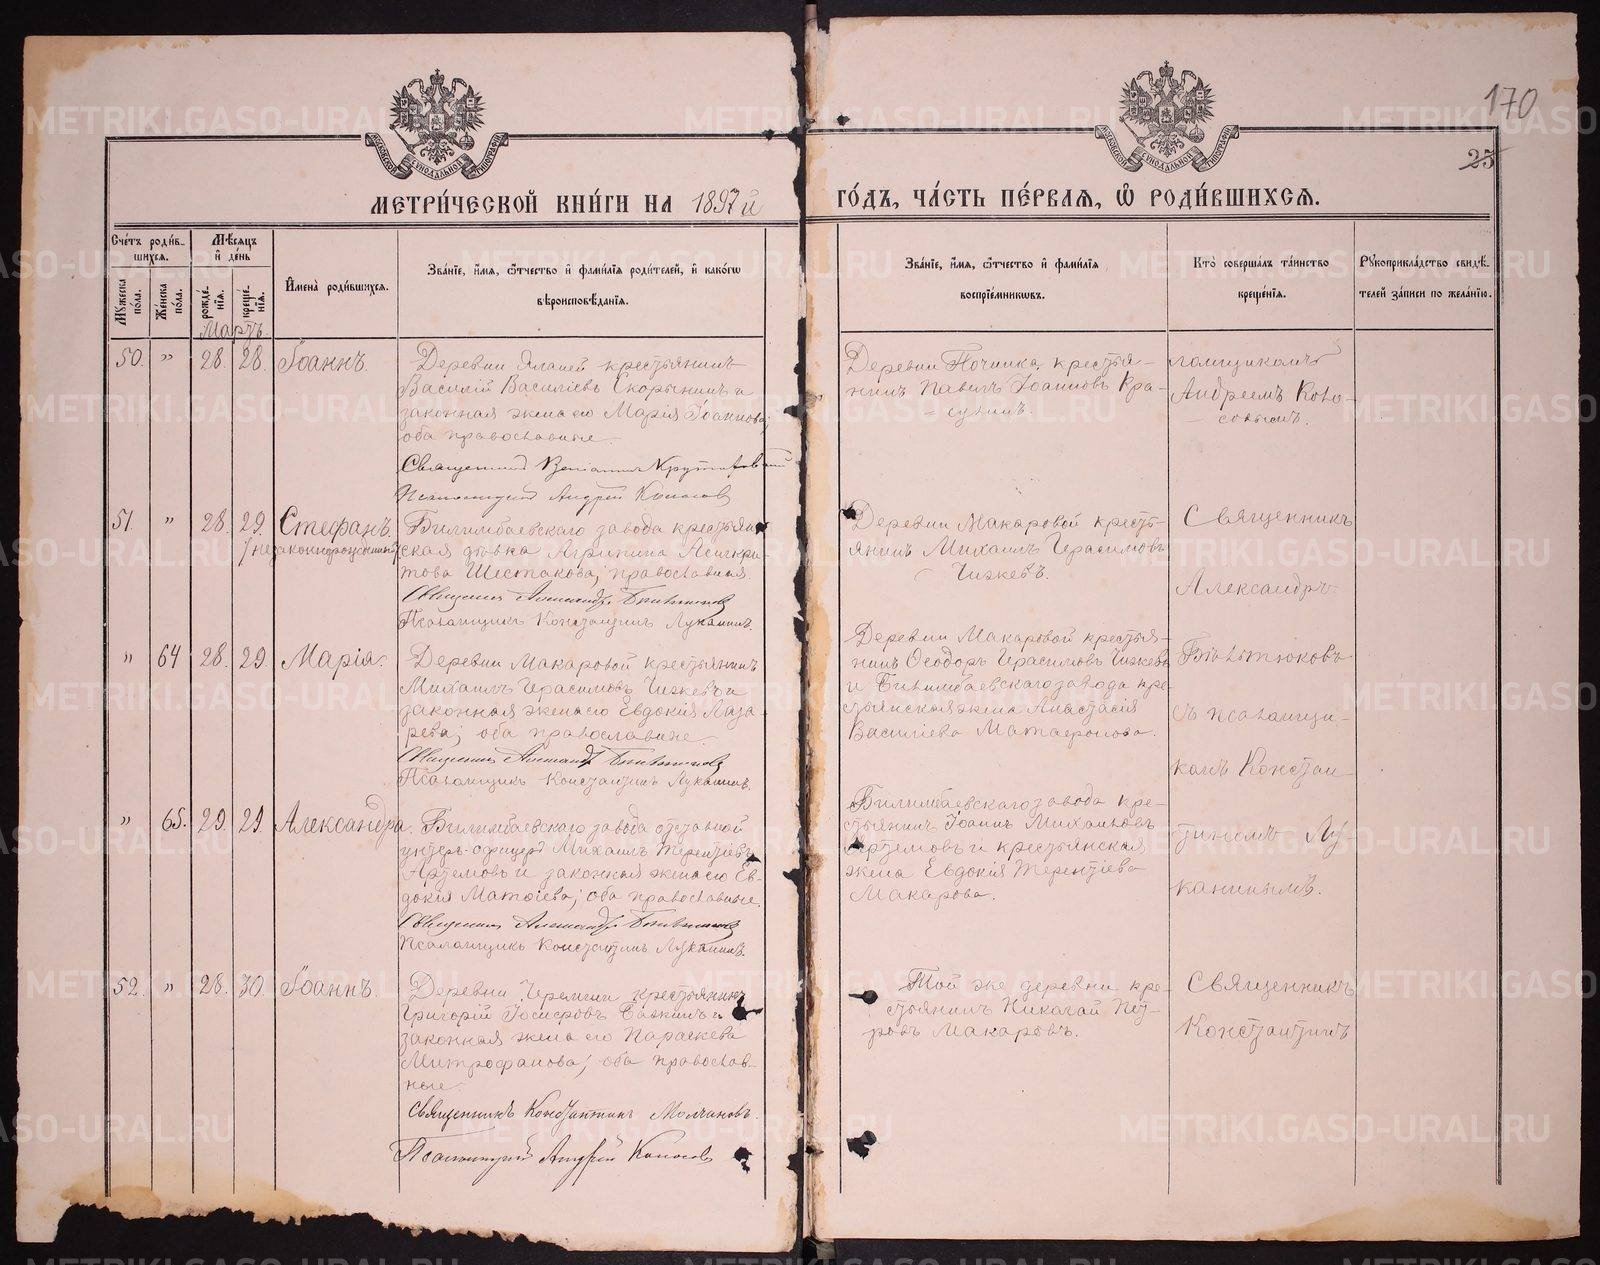 170
25
МОСКОВСКОЙ СУНОДАЛЬНОЙ ТИПОГРАФІИ
МОСКОВСКОЙ СУНОДАЛЬНОЙ ТИПОГРАФІИ
МЕТРИ́ЧЕСКОЙ КНИ́ГИ НА 1897й
ГО́ДЪ, ЧА́СТЬ ПЕ́РВАѦ, Ѡ҆ РОДИ́ВШИХСѦ.
Сче́тъ роди́в-
шихсѧ.
Му́жеска по́ла.
Же́нска по́ла.
Мѣ́сѧцъ
и҆ де́нь
рожде́-
нїѧ.
креще́-
нїѧ.
Мартъ.
И҆мена̀ роди́вшихсѧ.
Зва́нїе, и҆́мѧ, ѻ҆́тчество и҆ фами́лїѧ роди́телей, и҆ како́гѡ
вѣроисповѣ́данїѧ.
Зва́нїе, и҆́мѧ, ѻ҆́тчество и҆ фами́лїѧ
воспрїе́мникѡвъ.
Кто̀ соверша́лъ та́инство
креще́нїѧ.
Рꙋкоприкла́дство свидѣ́-
телей за́писи по жела́нїю.
50. " 28. 28. Іоаннъ.
Деревни Ялашей крестьянинъ
Василій Василіевъ Скорынинъ и
законная жена его Марія Іоаннова;
оба православные.
Священникъ
Псаломщикъ Андрей Колосовъ
Деревни Починка, крестья-
нинъ Павелъ Іоанновъ Кра-
сулинъ.
ломщикомъ
Андреемъ Коло-
совымъ.
51. " 28. 29. Стефанъ.
(незаконнорожденный)
Билимбаевскаго завода крестьян-
ская дѣвка Агрипина Асигкри-
това Шестакова; православная.
Священникъ Александръ
Псаломщикъ Константинъ Луканинъ.
Деревни Макаровой кресть-
янинъ Михаилъ Герасимовъ
Чижевъ.
Священникъ
Александръ
" 64 28. 29. Марія.
Деревни Макаровой крестьянинъ
Михаилъ Герасимовъ Чижевъ и
законная жена его Евдокія Лаза-
рева; оба православные.
Священникъ Александръ
Псаломщикъ Константинъ Луканинъ.
Деревни Макаровой крестья-
нинъ Ѳеодоръ Герасимовъ Чижевъ
и Билимбаевскаго завода кре-
стьянская жена Анастасія
Василіева
съ псаломщи-
комъ Констан
" 65. 29. 29. Александра.
Билимбаевскаго завода отставной
унтеръ-офицеръ Михаилъ Терентіевъ
Артемовъ и законная жена его Ев-
докія Матѳіева; оба православные.
Священникъ Александръ
Псаломщикъ Константинъ Луканинъ.
Билимбаевскаго завода кре-
стьянинъ Іоаннъ Михаиловъ
Артемовъ и крестьянская
жена Евдокія Терентіева
Макарова.
тиномъ Лу-
канинымъ.
52. " 28. 30. Іоаннъ.
Деревни крестьянинъ
Григорій Іосифовъ и
законная жена его Параскева
Митрофанова; оба православ-
ные.
Священникъ Константинъ Молчановъ.
Псаломщикъ Андрей Колосовъ
Той же деревни кре-
стьянинъ Николай Пет-
ровъ Макаровъ.
Священникъ
Константинъ
METRIKI.GASO-URAL.RU